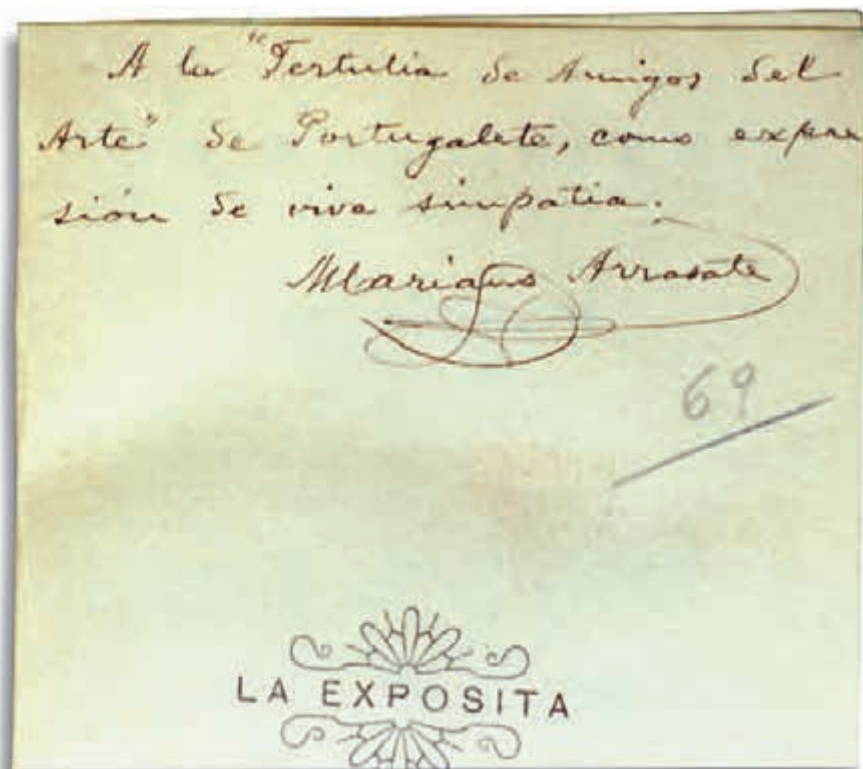 A la "Tertulia de Amigos del
Arte" de Portugalete, como expre
sión de viva simpatia.
Mariano Arrasate
69
LA EXPOSITA